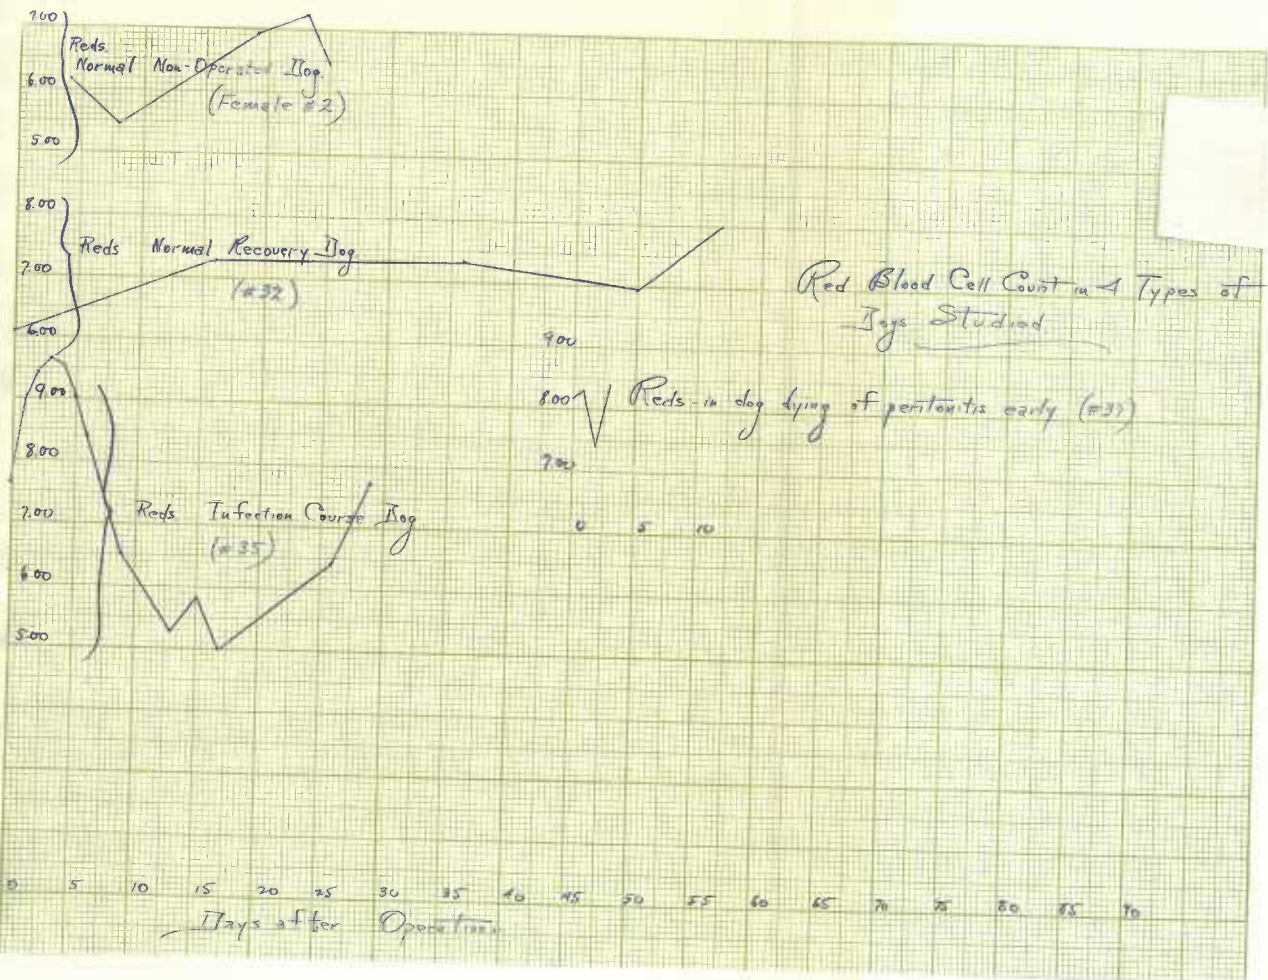 7.00
Reds.
Normal Non-Operated Dog.
6.00
(Female #2)
5.00
8.00
Reds Normal Recovery Dog
7.00
(#32)
6.00
Red Blood Cell Count in 4 Types of
Dogs Studied
9.00
8.00 Reds - in dog dying of peritonitis early (#37)
7.00
0 5 10
9.00
8.00
7.00 Reds Infection Course Dog
(#35)
6.00
5.00
0 5 10 15 20 25 30 35 40 45 50 55 60 65 70 75 80 85 90
Days after Operation.